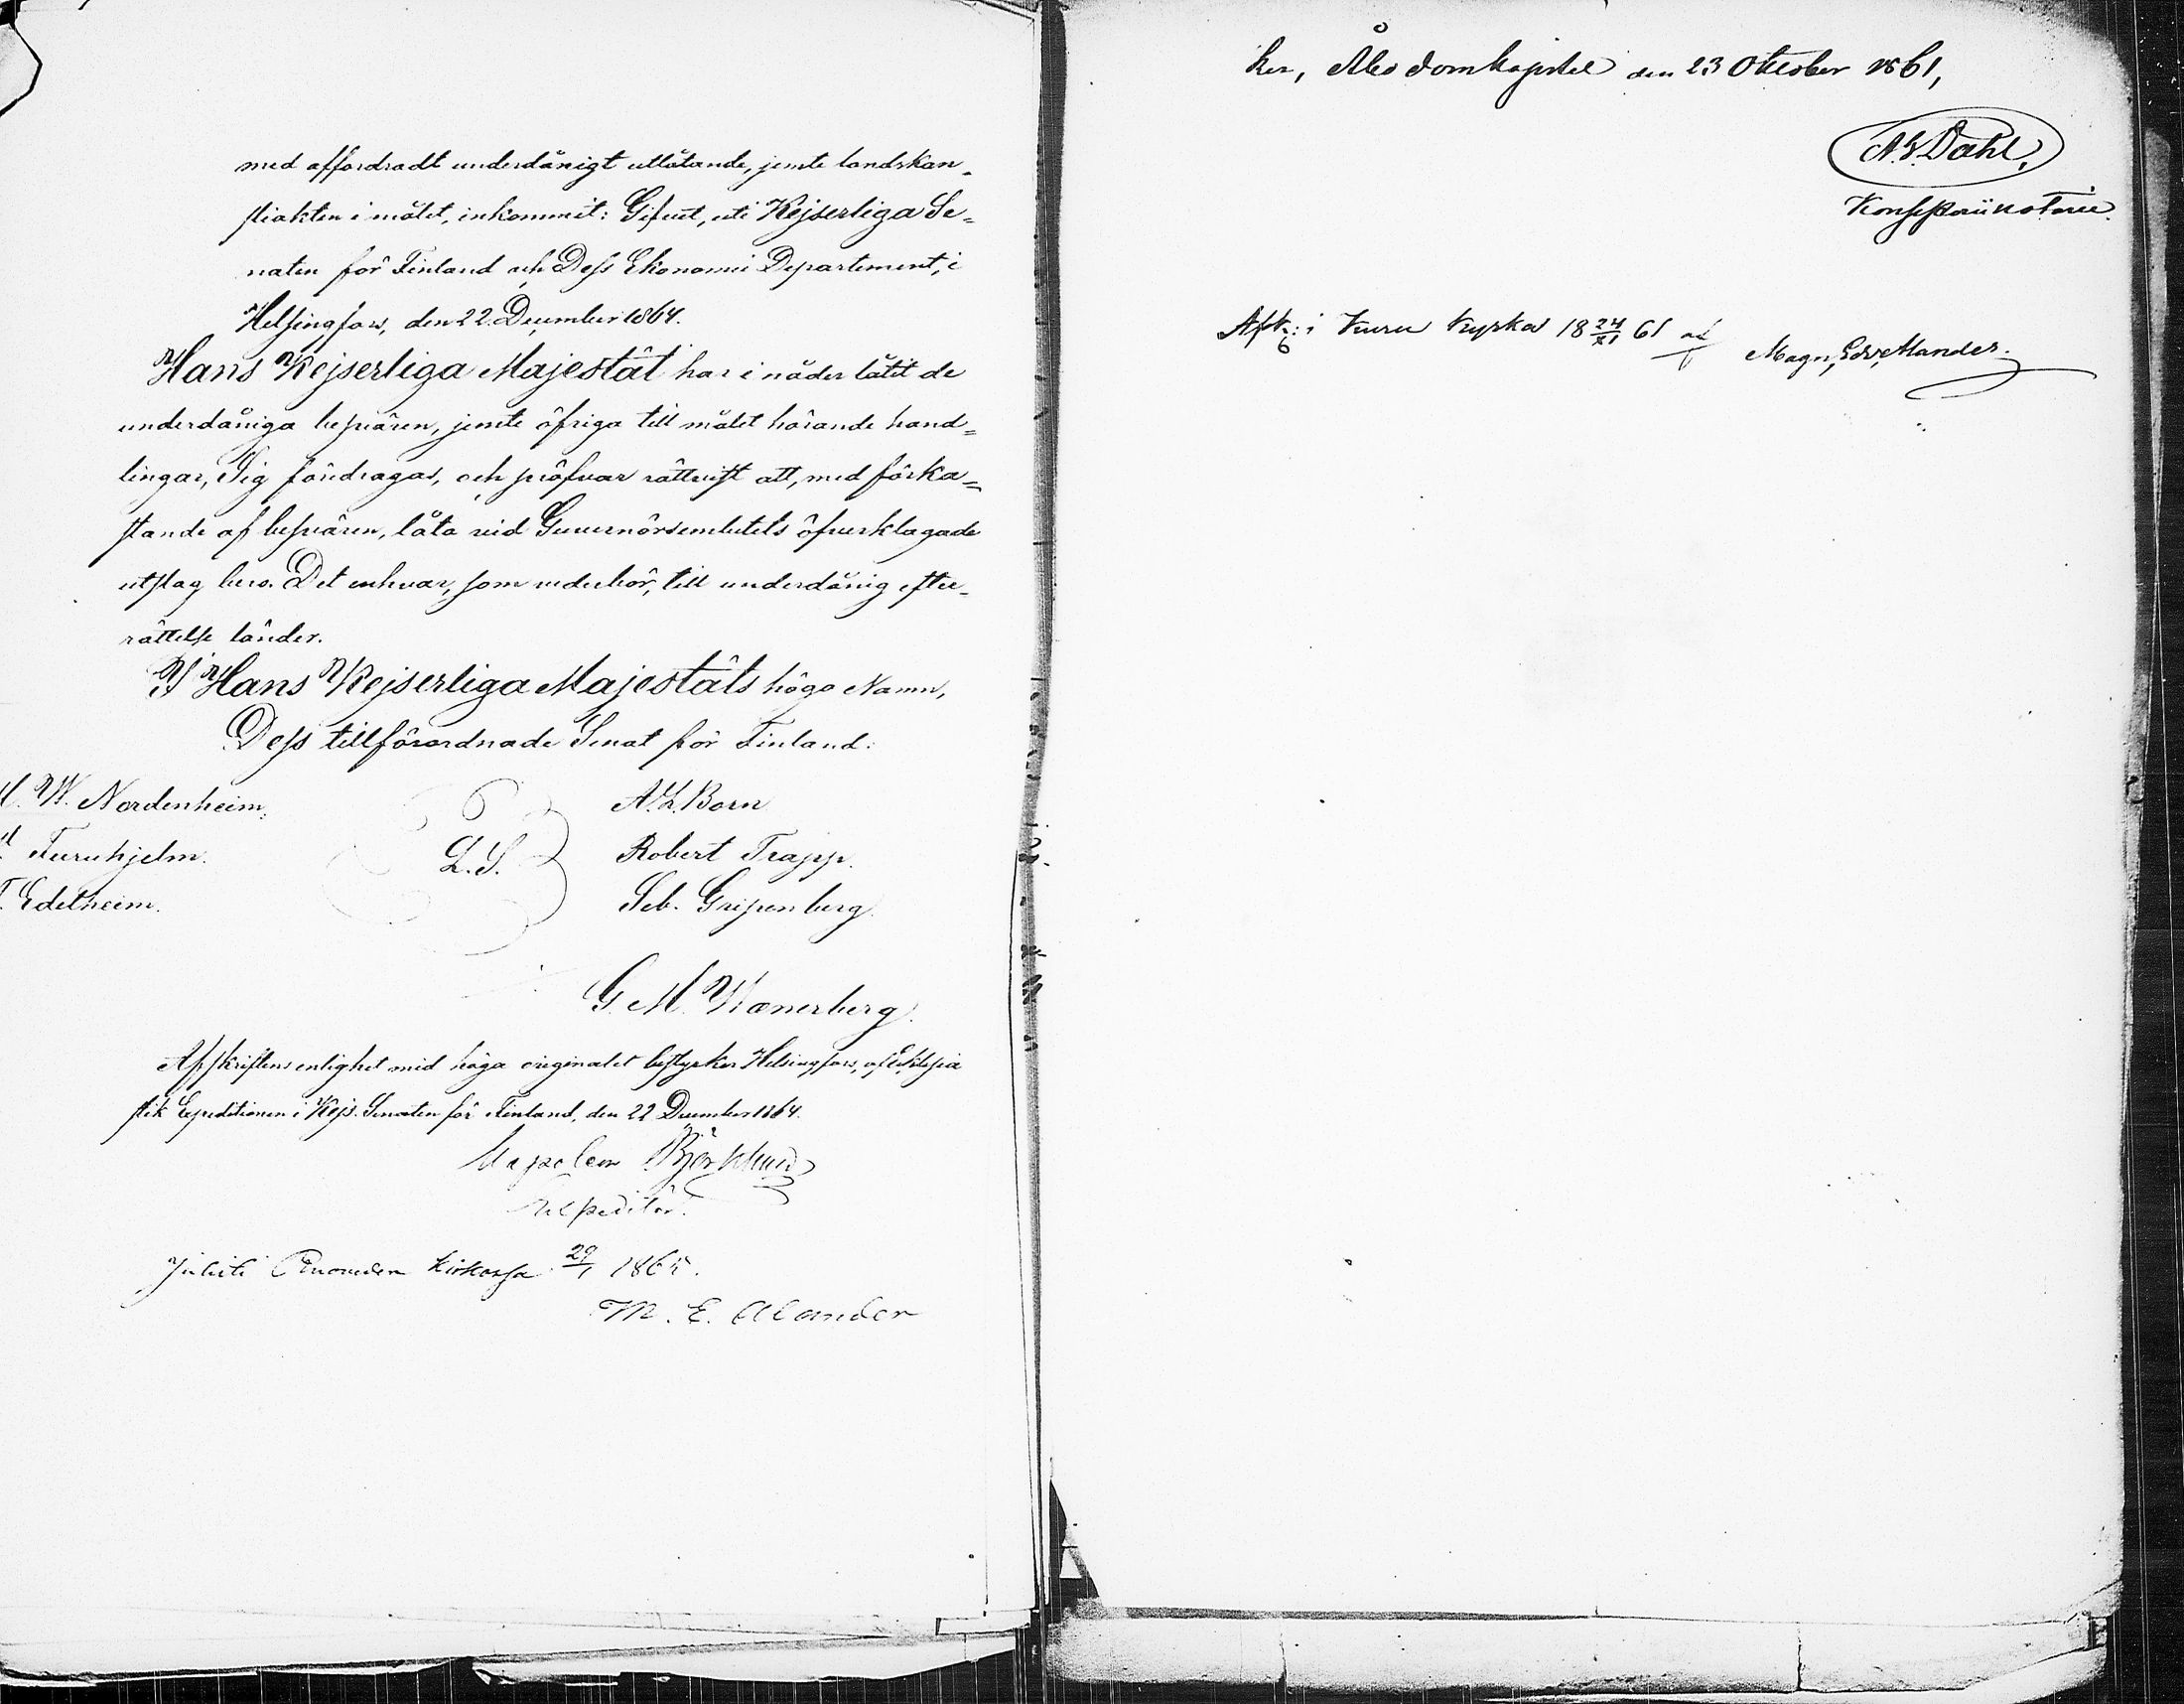 med affordradt underdånigt utlåtande, jemte landskan-
sliakten i målet, inkommit: Gifvet, uti Kejserliga Se-
naten för Finland och Dess Ekonomi Departement, i
Helsingfors, den 22 December 1864.
Hans Kejserliga Majestät har i nåder låtit de
underdåniga besvären, jemte öfriga till målet hörande hand-
lingar, Sig föredragas, och pröfvar rättvist att, med förka-
stande af besvären, låta vid Guvernörsembetets öfverklagade
utslag bero. Det enhvar, som vederbör, till underdånig efter-
rättelse länder.
I Hans Kejserliga Majestäts höga Namn,
Dess tillförordnade Senat för Finland:
W. Nordenheim.
A. L. Born
Furuhjelm.
L. S.
Robert Trapp.
Edelheim.
Seb. Gripenberg.
G. M. Wænerberg.
Afskriftens enlighet med höga originalet bestyrker Helsingfors, af Eklesia
stik Expeditionen i Kejs. Senaten för Finland, den 22 December 1864.
Napoleon Björklund
Expeditör.
Julisti Ruoveden kirkossa 29/1 1865.
M. E. Alander
ker, Åbo domkapitel den 23 Oktober 1861,
Dahl,
Konsistorii notarie.
i Kuru Kyrka 18 24/XI 61 af Magn. Edv. Alander.